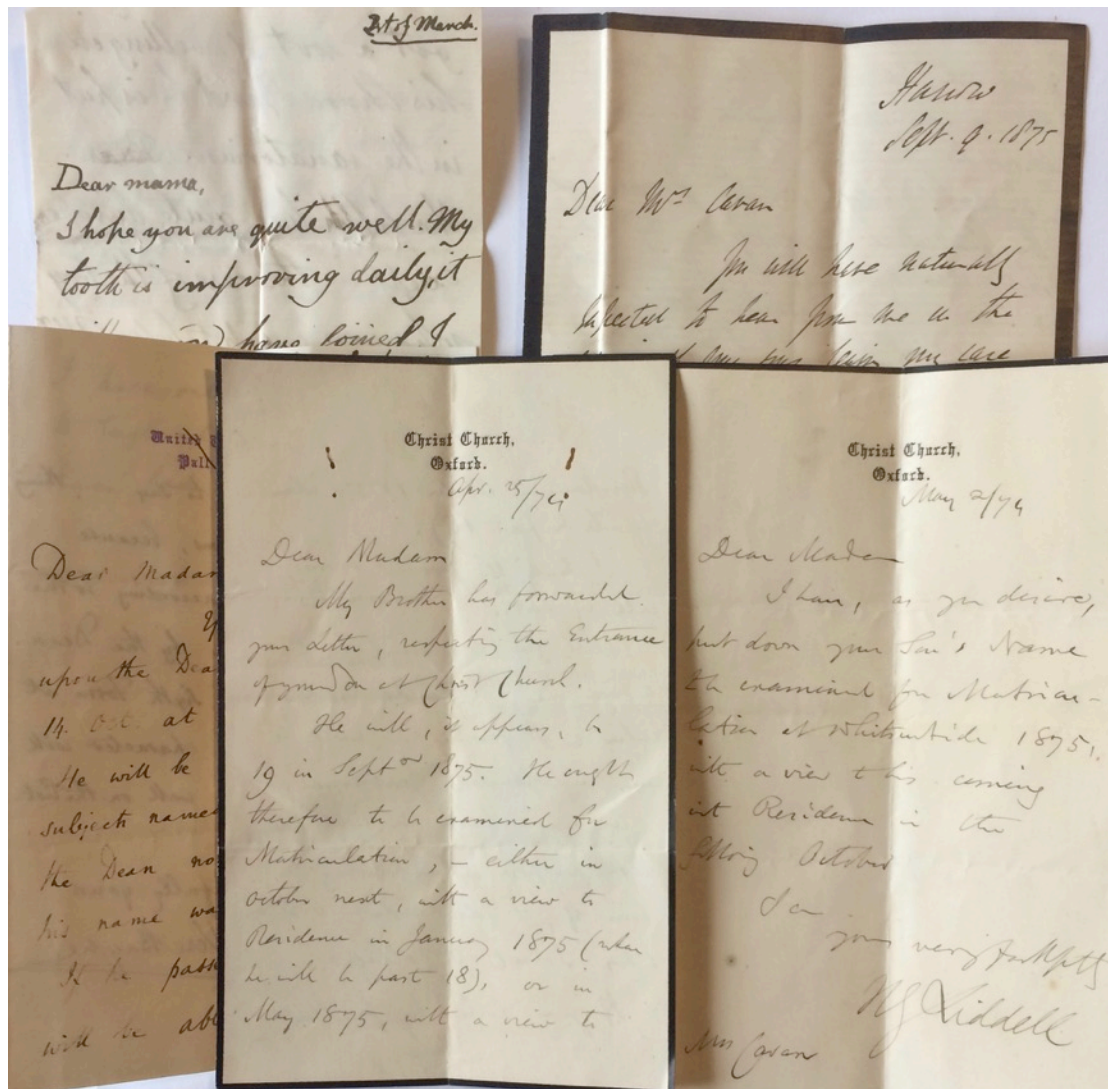 1st of March.
Dear mama,
I hope you are quite well. My
tooth is improving daily, it
have joined I
Harrow
Sept. 9. 1875
Dear Mrs Cavan
You will have naturally
expected to hear from me on the
my care
United
Pall
Dear Madam
upon the Dea
14. Oct. at
He will be
subjects named
the Dean no
his name wa
If he pass
will be abl
Christ Church,
Oxford.
Apr. 25/74
Dear Madam
My Brother has forwarded
your Letter, respecting the Entrance
of your Son at Christ Church.
He will, it appears, be
19 in Septr 1875. He ought
therefore to be examined for
Matriculation, – either in
October next, with a view to
Residence in January 1875 (when
he will be past 18), or in
May 1875, with a view to
Christ Church,
Oxford.
May 2/74
Dear Madam
I have, as you desire,
put down your Son's Name
to be examined for Matricu-
lation at Whitsuntide 1875,
with a view to his coming
into Residence in the
following October
I am
yours very faithfully
H G Liddell
Mrs Cavan